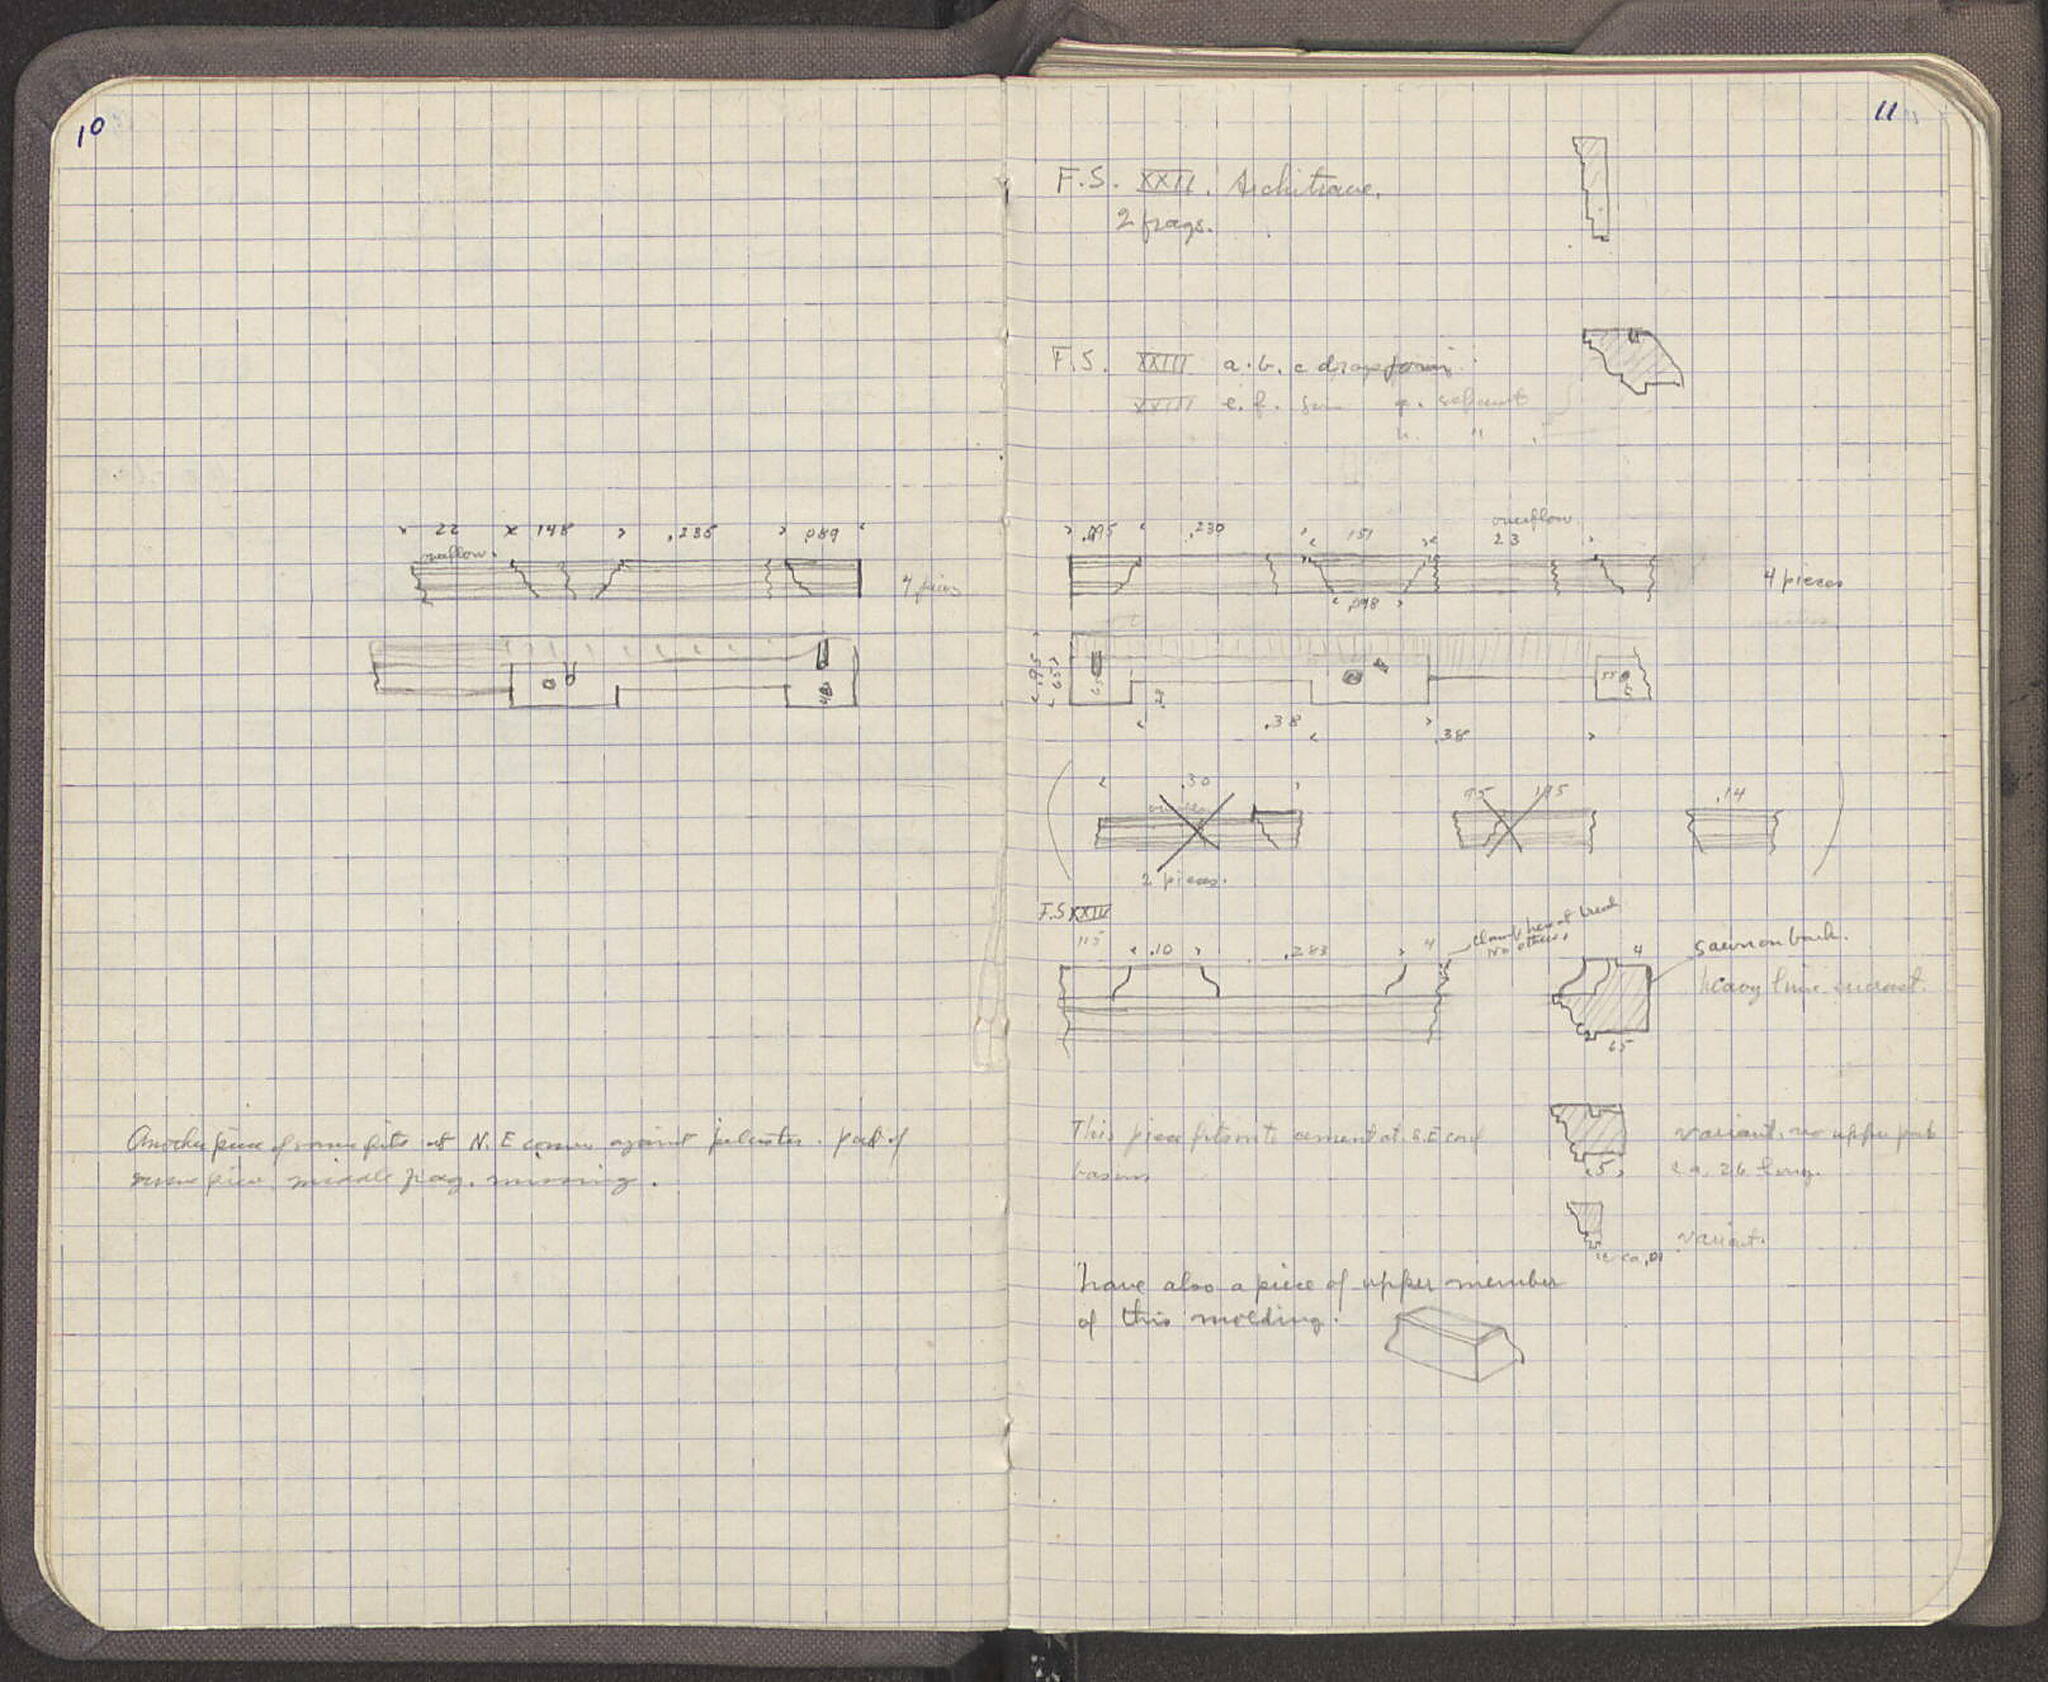 10
22 x 148 .235 .089
overflow.
4 pieces
Another piece of same fits at N.E corner against pilaster. part of
same piece, middle frag. missing.
11
F.S. XXII. Architrave.
2 frags.
F.S. XXIII a. b. c
XXIII e. f.
"
overflow
.095 .230 151 23
4 pieces
.098
.95
65
.38
.38
.30
.14
2 pieces.
F.S XXIV
115 .10 .283 4
No others.
4 sawn on back.
heavy lime incrust.
65
This piece fits onto cement at S.E corn
basin
variant. no upper part
ca. 26 long.
5
variant.
have also a piece of upper member
of this molding.